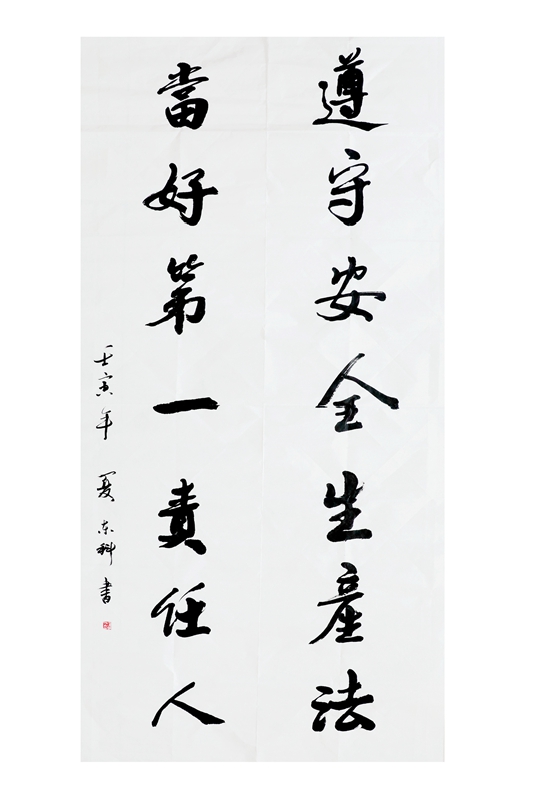 遵守安全生產法
當好第一責任人
壬寅年 夏 东科書